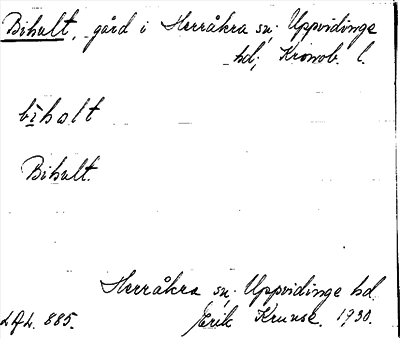 Bihult, gård i Herråkra sn; Uppvidinge
hd; Kronob. l.
bīholt
Bihult.
Herråkra sn; Uppvidinge hd.
LAL. 885. Erik Kruuse. 1930.